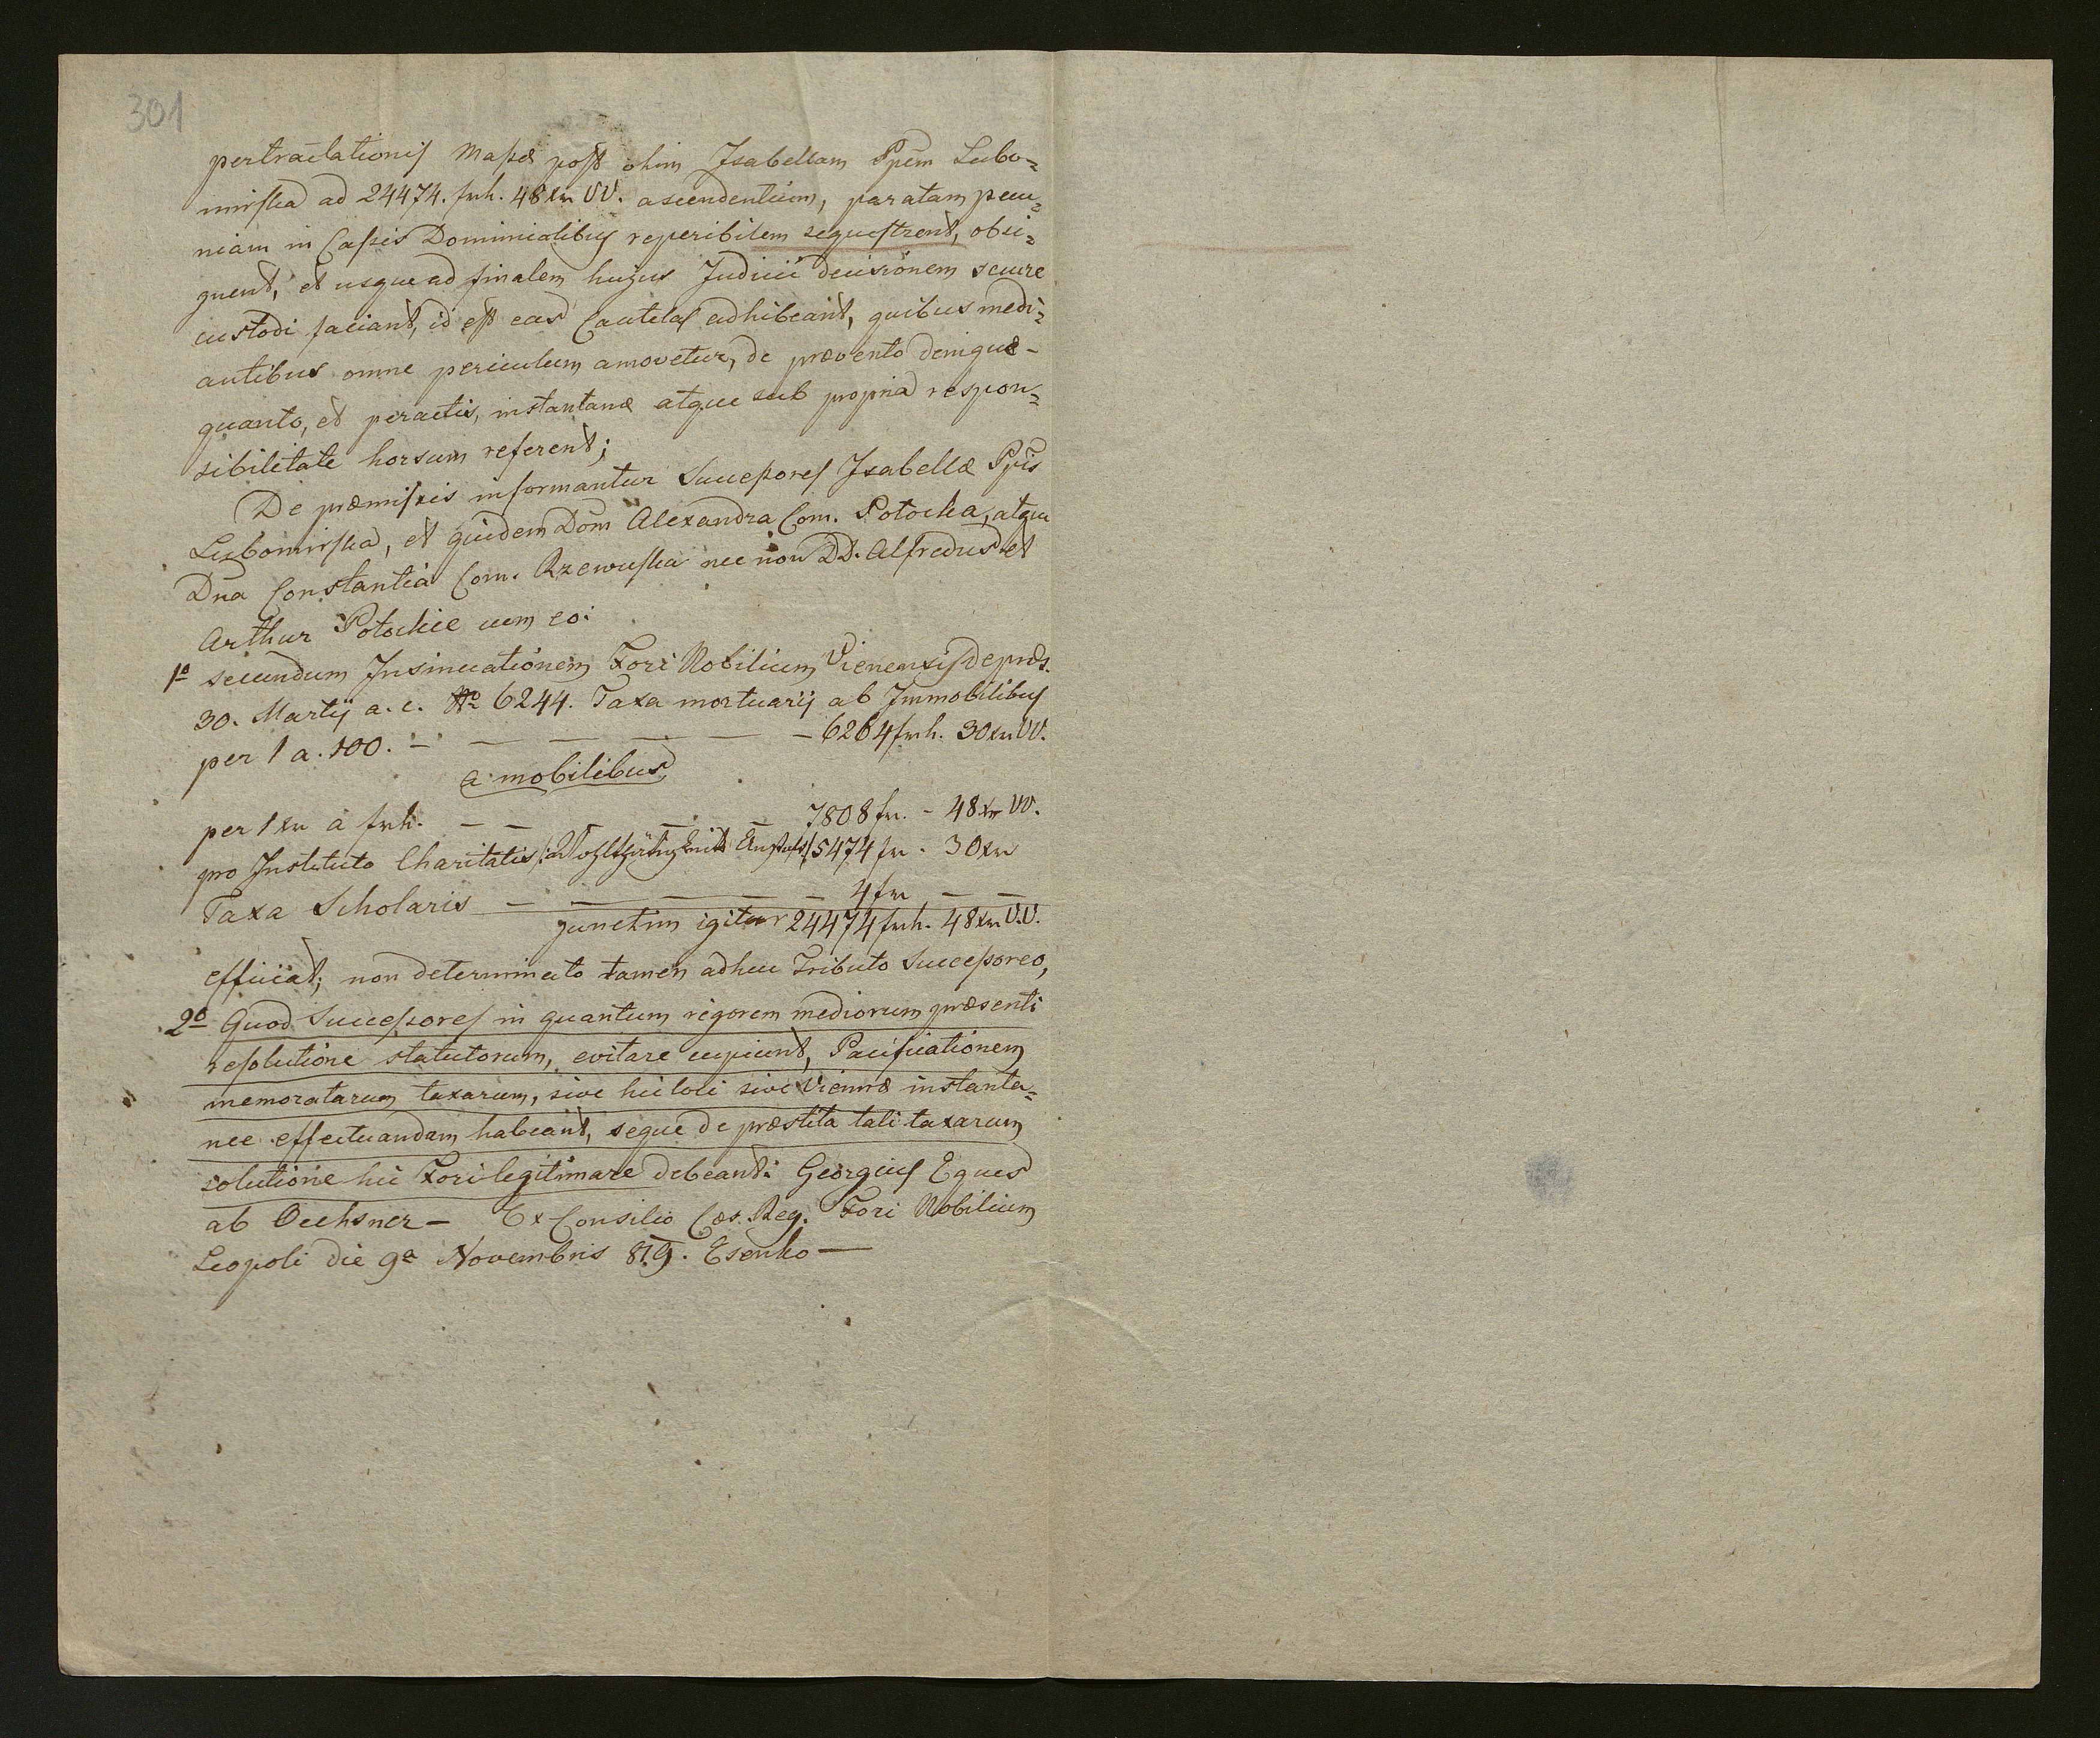 301
pertractationis Massæ post olim Isabellam Ppem Lubo=
mirska ad 24474. frh. 48 xr VV. ascendentium, paratam pecu=
niam in Cassis Dominialibus reperibilem sequestrent, obsi=
gnent, et usque ad finalem hujus Judicii decisionem secure
custodi faciant, id est eas Cautelas adhibeant, quibus medi=
antibus omne periculum amovetur, de provento denique
quanto, et peractis, instantane atque sub propria respon=
sibilitate horsum referent;
De præmissis informantur Successores Isabellæ Ppis
Lubomirska, et quidem Dom Alexandra Com. Potocka, atque
Dna Constantia Com. Rzewuska nec non DD. Alfredus et
Arthur Potockie cum eo:
1º secundum Insinuationem Fori Nobilium Vienensis de præs.
30. Martij a. c. No 6244. Taxa mortuarij ab Immobilibus
per 1 a. 100. — — — — — — 6264 frh. 30 xr VV.
a mobilibus
per 1 xr a frh. — — — — — 7808 fr. - 48 xr VV.
pro Instituto Charitatis /: Wohlthätigkeits Anstalt :/ 5474 fr. 30 xr
Taxa Scholaris — — — — — 4 fr — —
junctim igitur 24474 frh. 48 xr V.V.
efficiat; non determinato tamen adhuc Tributo Successoreo,
2º Quod Successores in quantum rigorem mediorum præsenti
resolutione statutorum, evitare cupiunt, Pacificationem
memoratarum taxarum, sive hic loci sive Viennæ instanta=
nee effectuandam habeant, seque de præstita tali taxarum
solutione hic Fori legitimare debeant: Georgius Eques
ab Oechsner — Ex Consilio Cæs. Reg. Fori Nobilium
Leopoli die 9a Novembris 819. Esenko —